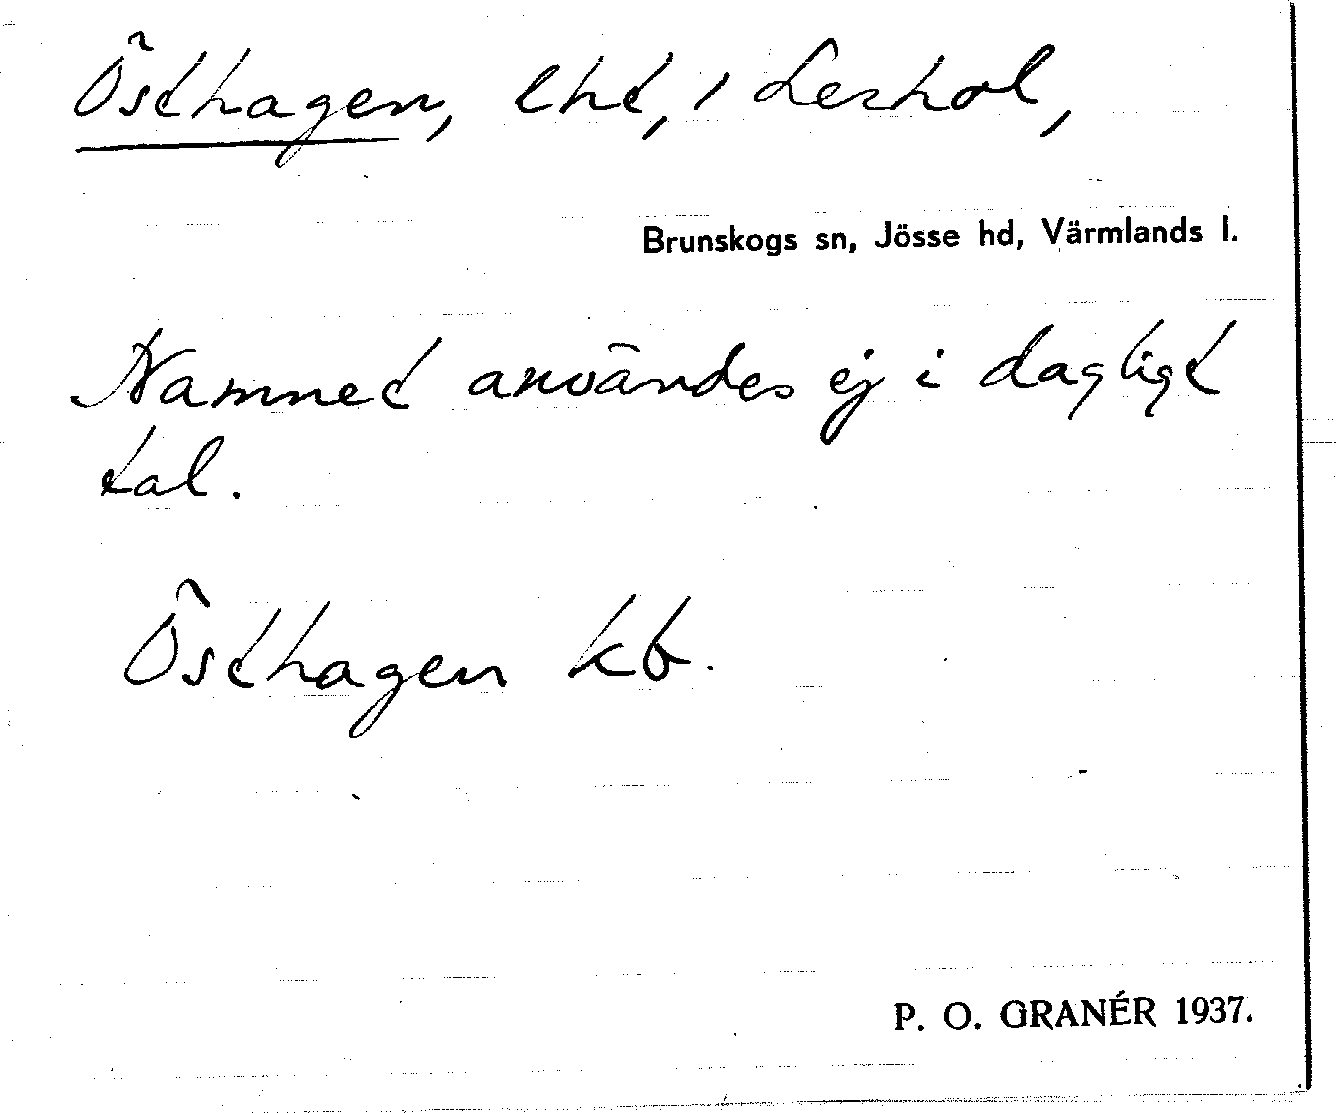 Östhagen, lht, i Lerhol,
Brunskogs sn, Jösse hd, Värmlands l.
Namnet användes ej i dagligt
tal.
Östhagen kb.
P. O. GRANÉR 1937.